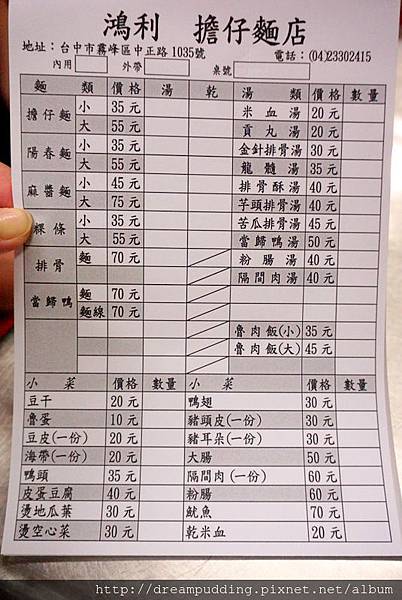 鴻利 擔仔麵店
地址：台中市霧峰區中正路 1035號 電話：(04)23302415
內用 外帶 桌號
麵 類 價格 湯 乾 湯 類 價格 數量
擔仔麵 小 35 元 米血湯 20 元
大 55 元 貢丸湯 20 元
陽春麵 小 35 元 金針排骨湯 30 元
大 55 元 龍髓湯 35 元
麻醬麵 小 45 元 排骨酥湯 40 元
大 75 元 芋頭排骨湯 40 元
粿條 小 35 元 苦瓜排骨湯 45 元
大 55 元 當歸鴨湯 50 元
排骨 麵 70 元 粉腸湯 40 元
隔間肉湯 40 元
當歸鴨 麵 70 元
麵線 70 元
魯肉飯(小) 35 元
魯肉飯(大) 45 元
小 菜 價格 數量 小 菜 價格 數量
豆干 20 元 鴨翅 30 元
魯蛋 10 元 豬頭皮(一份) 30 元
豆皮(一份) 20 元 豬耳朵(一份) 30 元
海帶(一份) 20 元 大腸 50 元
鴨頭 35 元 隔間肉(一份) 60 元
皮蛋豆腐 40 元 粉腸 60 元
燙地瓜葉 30 元 魷魚 70 元
燙空心菜 30 元 乾米血 20 元
http://dreampudding.pixnet.net/album